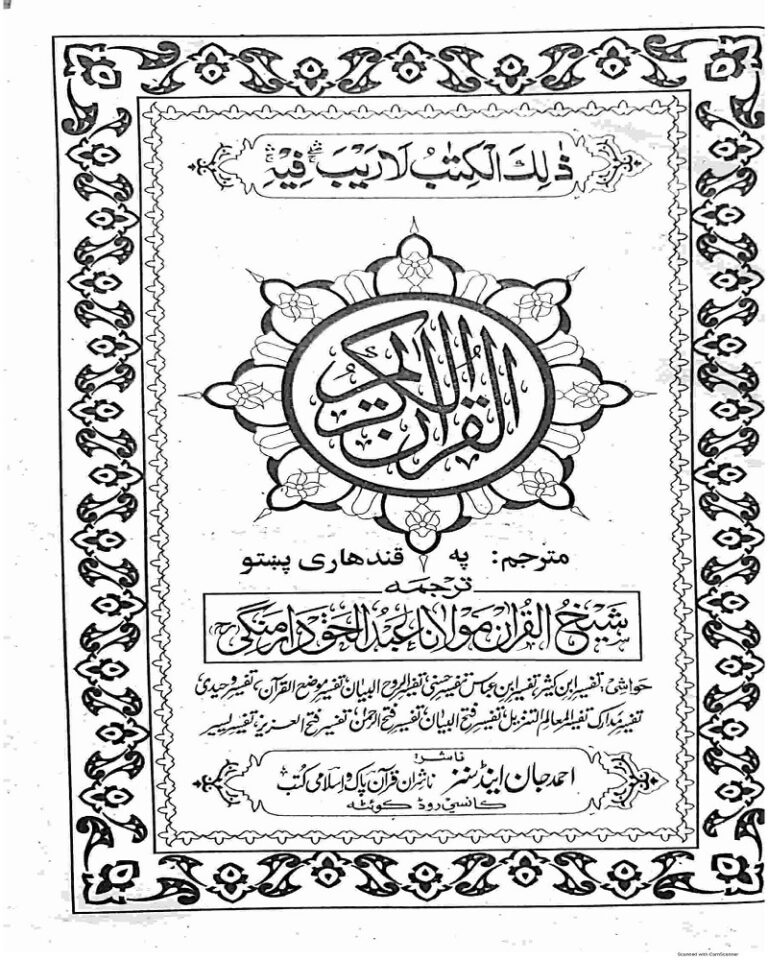 ذٰلِكَ الْكِتٰبُ لَا رَيْبَ فِيْهِ
القرآن الكريم
مترجم: په قندهاری پښتو
ترجمه
شیخ القرآن مولانا عبد الحق دارمنگی رح
حواشی: تفسیر ابن کثیر، تفسیر ابن عباس، تفسیر حسنی، تفسیر الروح البیان، تفسیر موضع القرآن، تفسیر وحیدی،
تفسیر مدارک، تفسیر المعالم التنزیل، تفسیر فتح البیان، تفسیر فتح الرحمٰن، تفسیر فتح العزیز، تفسیر یسیر
ناشر:
احمد جان اینڈ سنز ناشران قرآن پاک و اسلامی کتب
کانسی روڈ کوئٹہ
Scanned with CamScanner